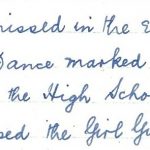 missed in the E
Dance marked
the High Scho
sed the Girl Gu